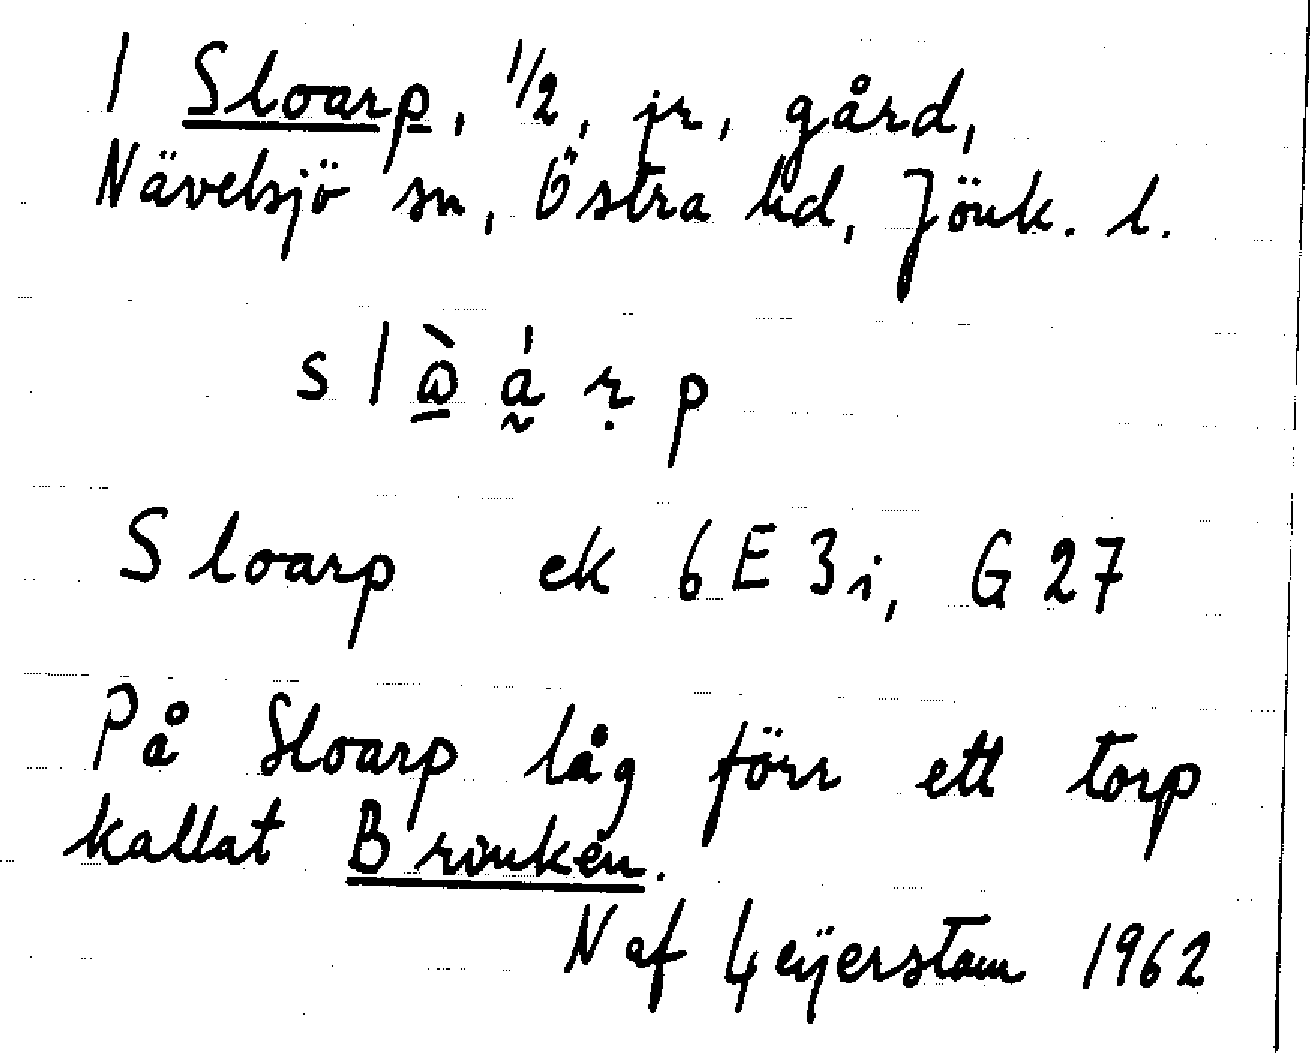 1 Sloarp, 1/2, jr, gård,
Nävelsjö sn, Östra hd, Jönk. l.
s l ò̲ á̰ ṛ p
Sloarp ek 6E3i, G27
På Sloarp låg förr ett torp
kallat Brinken.
N af Geijerstam 1962